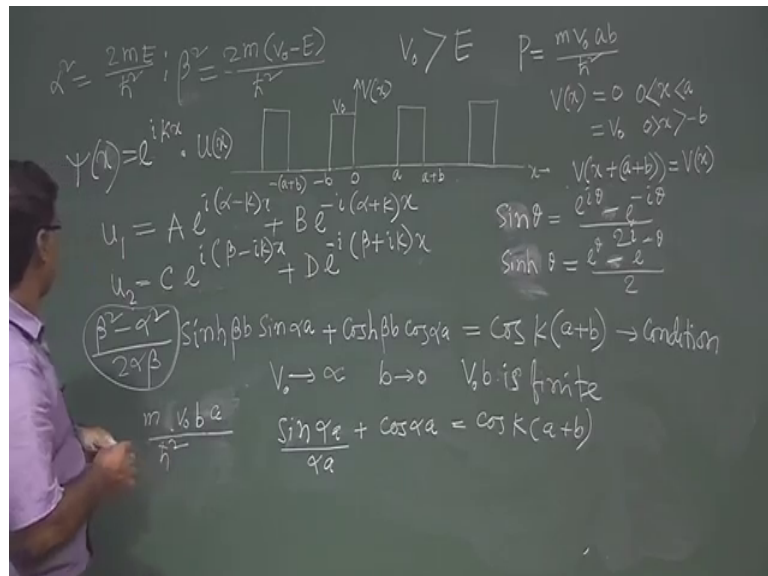 α² = 2mE/ħ² ; β² = 2m(V₀-E)/ħ²
V₀ > E
P = mV₀ab/ħ²
V(x) = 0 0<x<a
= V₀ 0>x>-b
V(x+(a+b)) = V(x)
ψ(x) = e^{ikx} · U(x)
V₀ V(x)
-(a+b) -b 0 a a+b x→
u₁ = A e^{i(α-k)x} + B e^{-i(α+k)x}
u₂ = C e^{i(β-ik)x} + D e^{-i(β+ik)x}
Sinθ = (e^{iθ} - e^{-iθ})/2i
Sinh θ = (e^θ - e^{-θ})/2
(β²-α²)/2αβ Sinhβb Sinαa + Coshβb cosαa = Cos K(a+b) → Condition
V₀ → ∝ b→0 V₀b is finite
m V₀ b a/ħ² Sinαa/αa + cosαa = cosK(a+b)